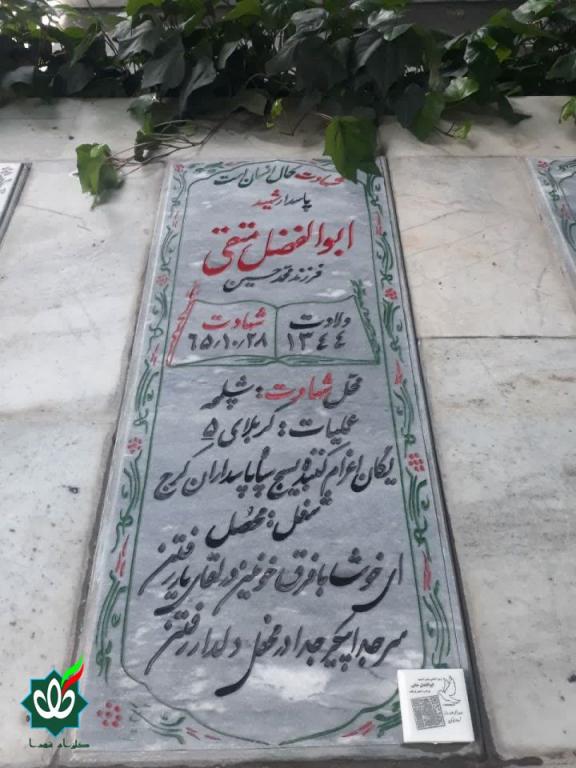 شهادت کمال انسان است
پاسدار شهید
ابوالفضل متقی
فرزند محمد حسین
ولادت
۱۳۴۴
شهادت
۶۵/۱۰/۲۸
محل شهادت: شلمچه
عملیات: کربلای ۵
یگان اعزام کننده بسیج سپاه پاسداران کرج
شغل: محصل
ای خوشا با فرق خونین در لقای یار رفتن
سر جدا پیکر جدا در محفل دلدار رفتن
گلزار شهدا